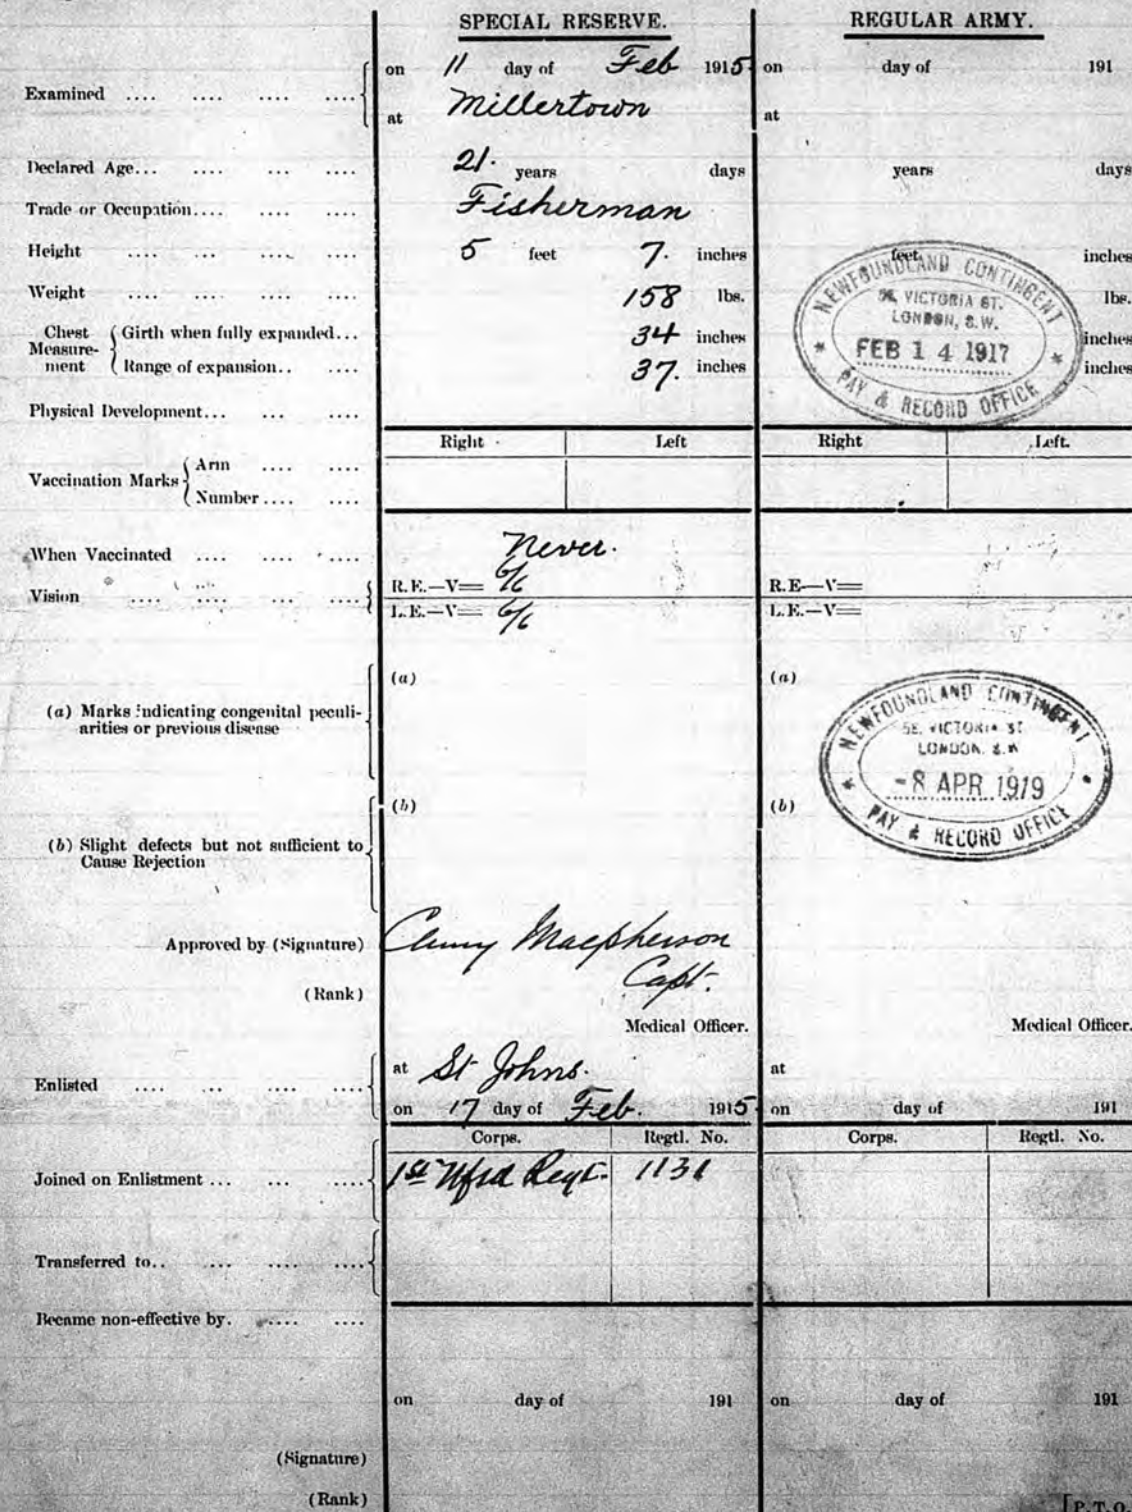 SPECIAL RESERVE. REGULAR ARMY.
Examined .... .... .... .... on 11 day of Feb 1915 on day of 191
at Millertown at
Declared Age... .... ... .... 21. years days years days
Trade or Occupation.... .... .... Fisherman
Height .... ... .... .... 5 feet 7. inches feet inches
Weight .... .... .... .... 158 lbs. lbs.
Chest Measurement Girth when fully expanded... 34 inches inches
Range of expansion.. .... 37. inches inches
NEWFOUNDLAND CONTINGENT
58, VICTORIA ST.
LONDON, S.W.
FEB 14 1917
PAY & RECORD OFFICE
Physical Development... ... ....
Right Left Right Left.
Vaccination Marks Arm .... ....
Number .... ....
When Vaccinated .... .... .... Never.
Vision .... .... ... .... R.E.—V= 6/6 R.E—V=
L.E.—V= 6/6 L.E.—V=
(a) (a)
(a) Marks indicating congenital peculi-
arities or previous disease
NEWFOUNDLAND CONTINGENT
58, VICTORIA ST.
LONDON. S.W
-8 APR 1919
PAY & RECORD OFFICE
(b) (b)
(b) Slight defects but not sufficient to
Cause Rejection
Approved by (Signature) Cluny Macpherson
(Rank) Capt.
Medical Officer. Medical Officer.
Enlisted .... ... .... .... at St Johns. at
on 17 day of Feb. 1915 on day of 191
Corps. Regtl. No. Corps. Regtl. No.
Joined on Enlistment ... ... .... 1st Nfld Regt. 1131
Transferred to.. .... .... ....
Became non-effective by. .... ....
on day of 191 on day of 191
(Signature)
(Rank)
[P.T.O